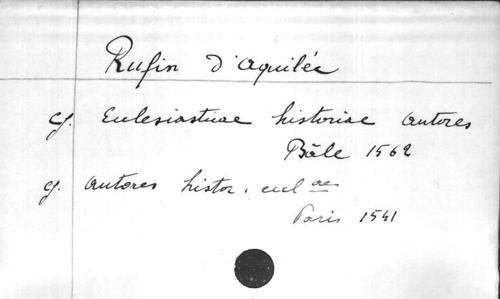 Rufin d'Aquilée
cf. Ecclesiasticae historiae autores
Bâle 1562
cf. autores histor. eccl ae
Paris 1541